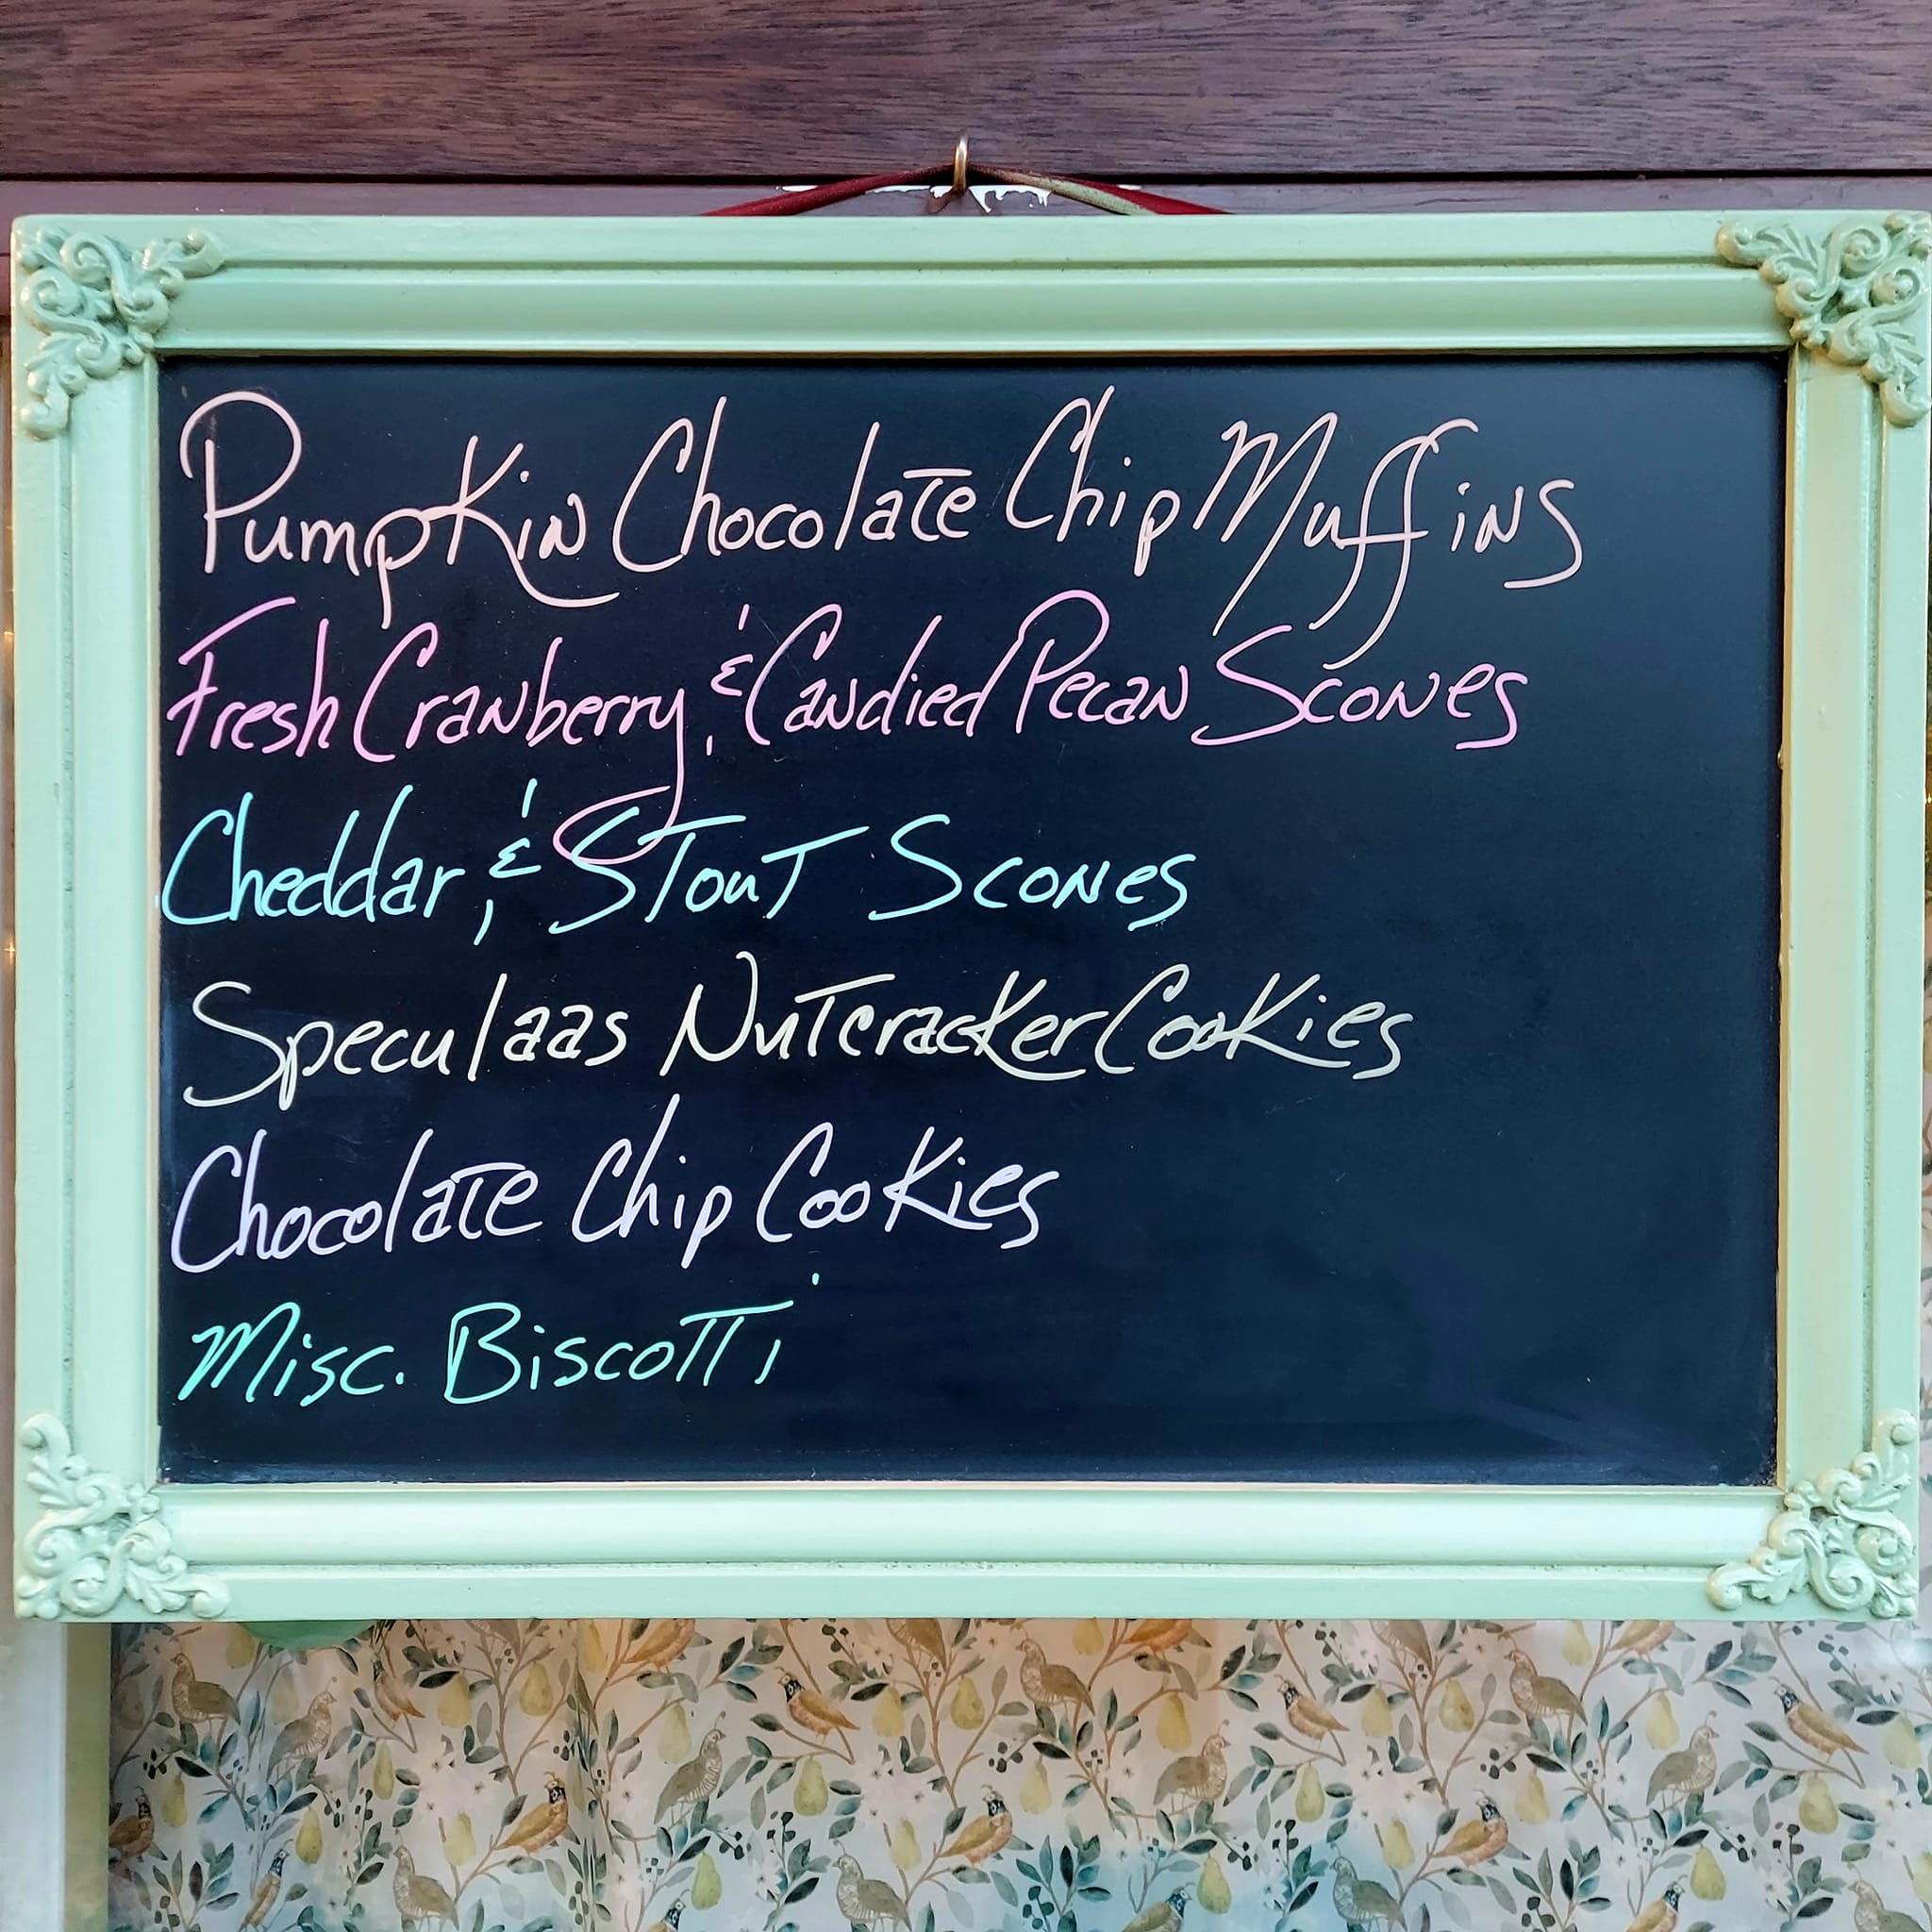 Pumpkin Chocolate Chip Muffins
Fresh Cranberry & Candied Pecan Scones
Cheddar & Stout Scones
Speculaas Nutcracker Cookies
Chocolate Chip Cookies
Misc. Biscotti